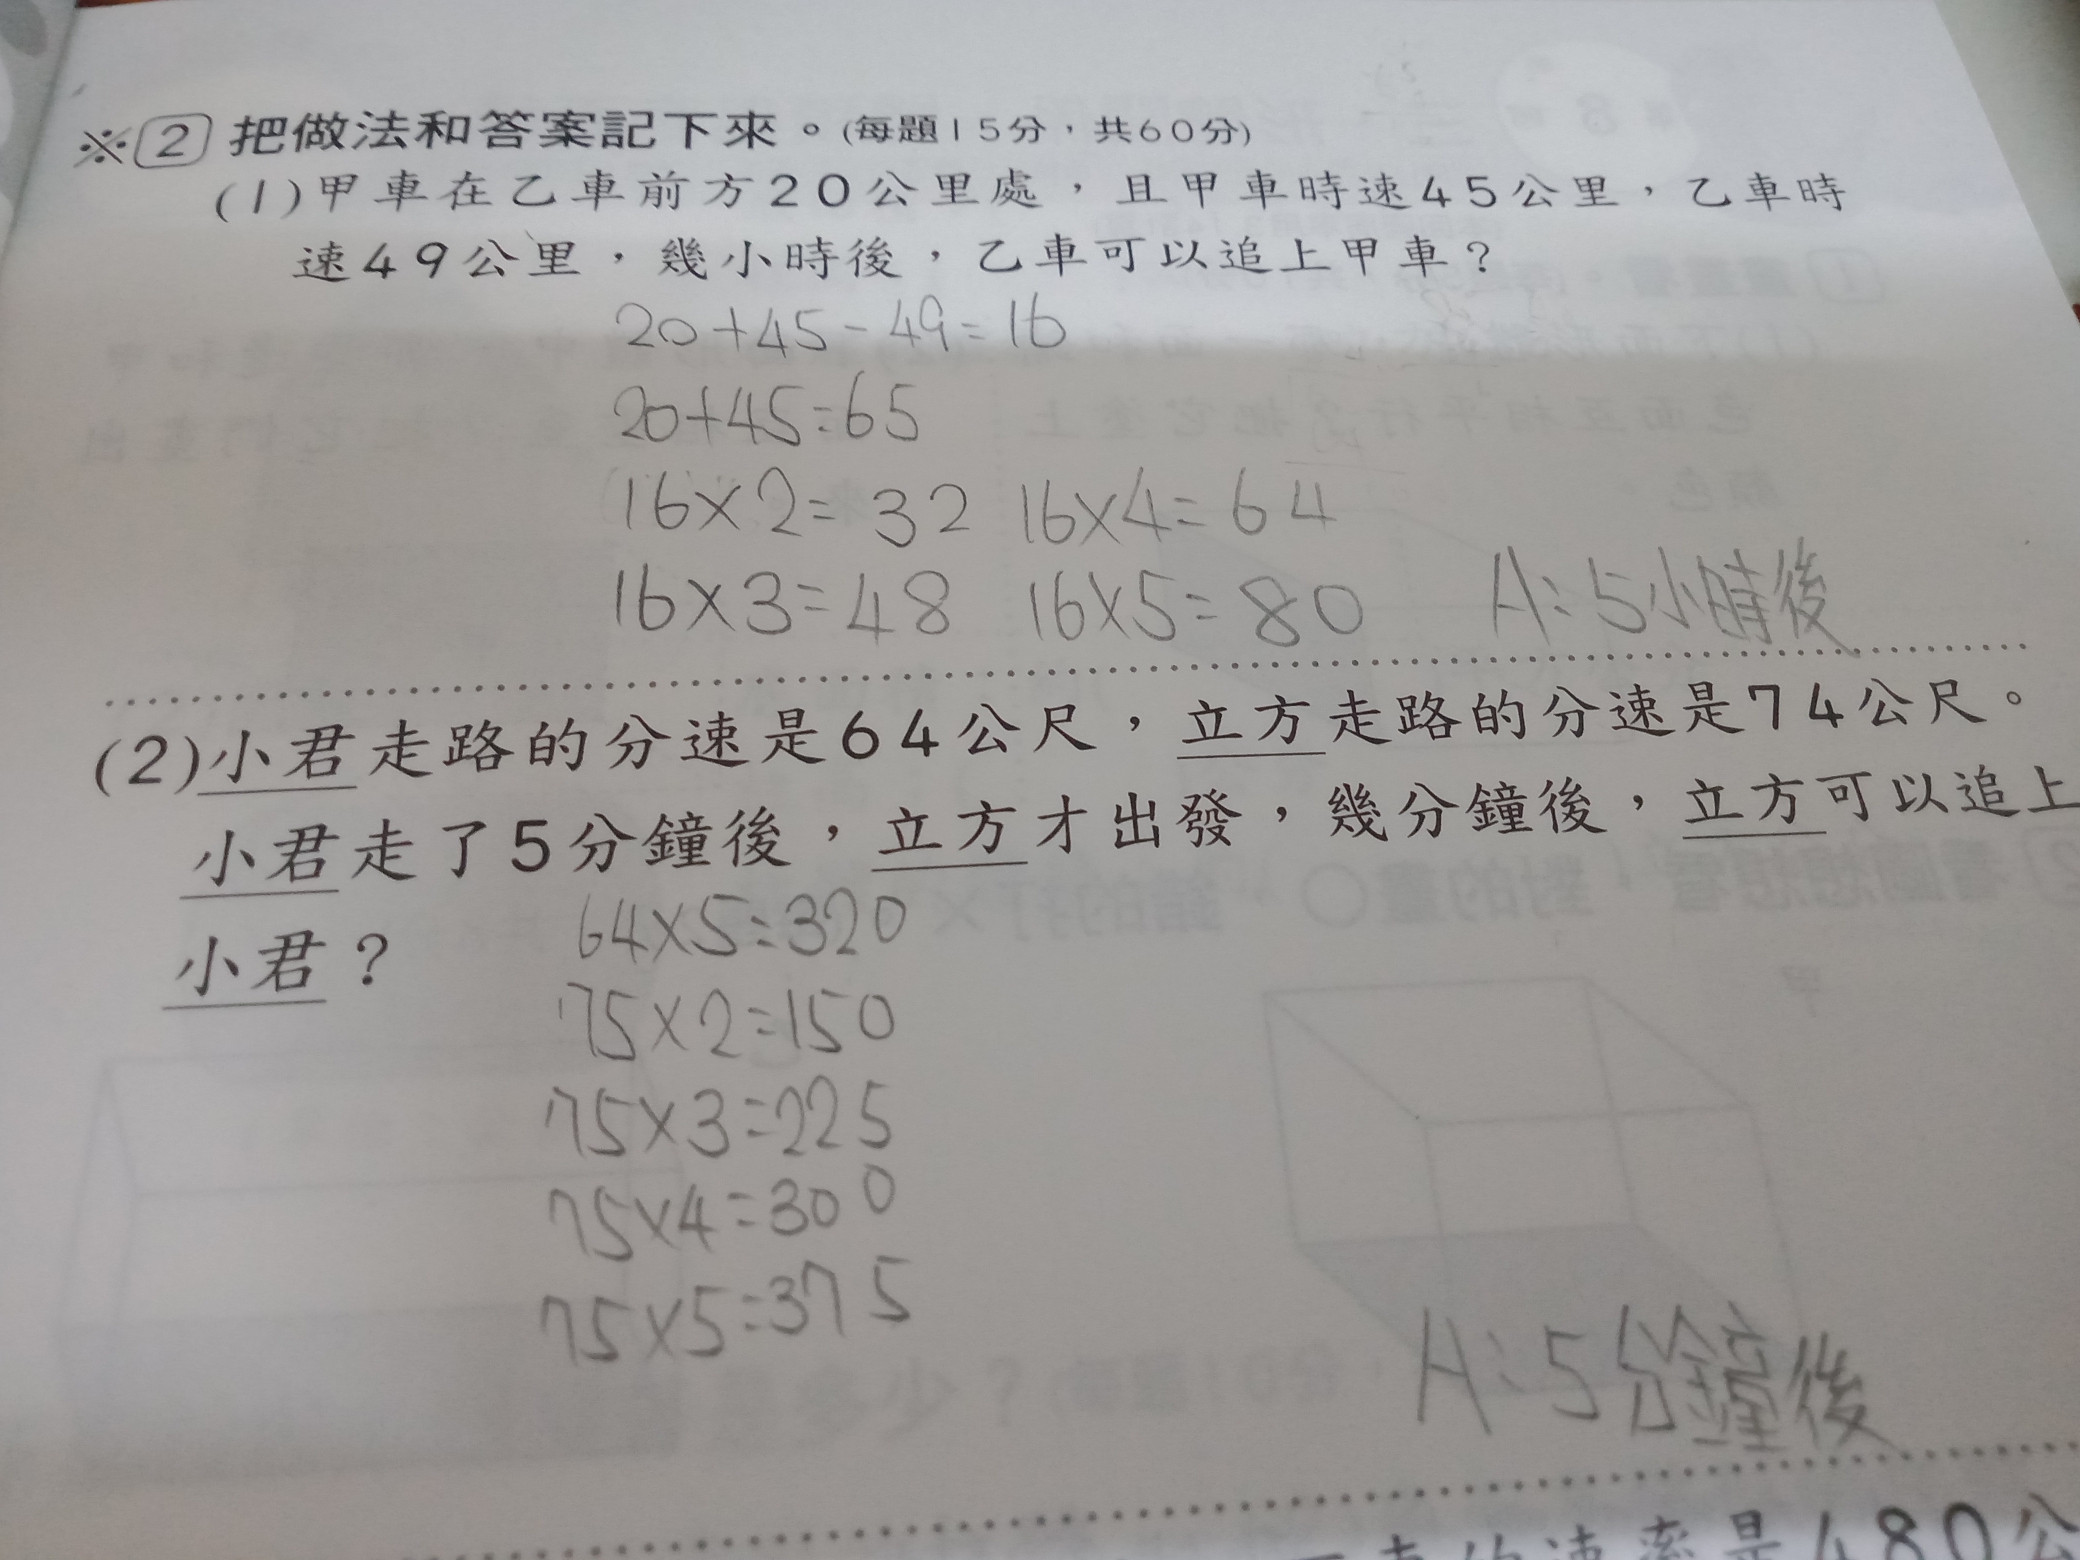 ※2 把做法和答案記下來。(每題15分，共60分)
(1)甲車在乙車前方20公里處，且甲車時速45公里，乙車時
速49公里，幾小時後，乙車可以追上甲車？
20+45-49=16
20+45=65
16×2=32 16×4=64
16×3=48 16×5=80 A:5小時後
(2)小君走路的分速是64公尺，立方走路的分速是74公尺。
小君走了5分鐘後，立方才出發，幾分鐘後，立方可以追上
小君？
64×5=320
75×2=150
75×3=225
75×4=300
75×5=375
A:5分鐘後
車的速率是480公